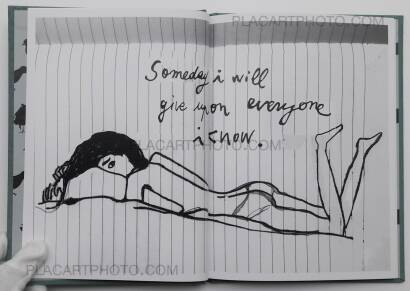 PLACARTPHOTO.COM
Someday i will
give upon everyone
i know.
PLACARTPHOTO.COM
PLACARTPHOTO.COM